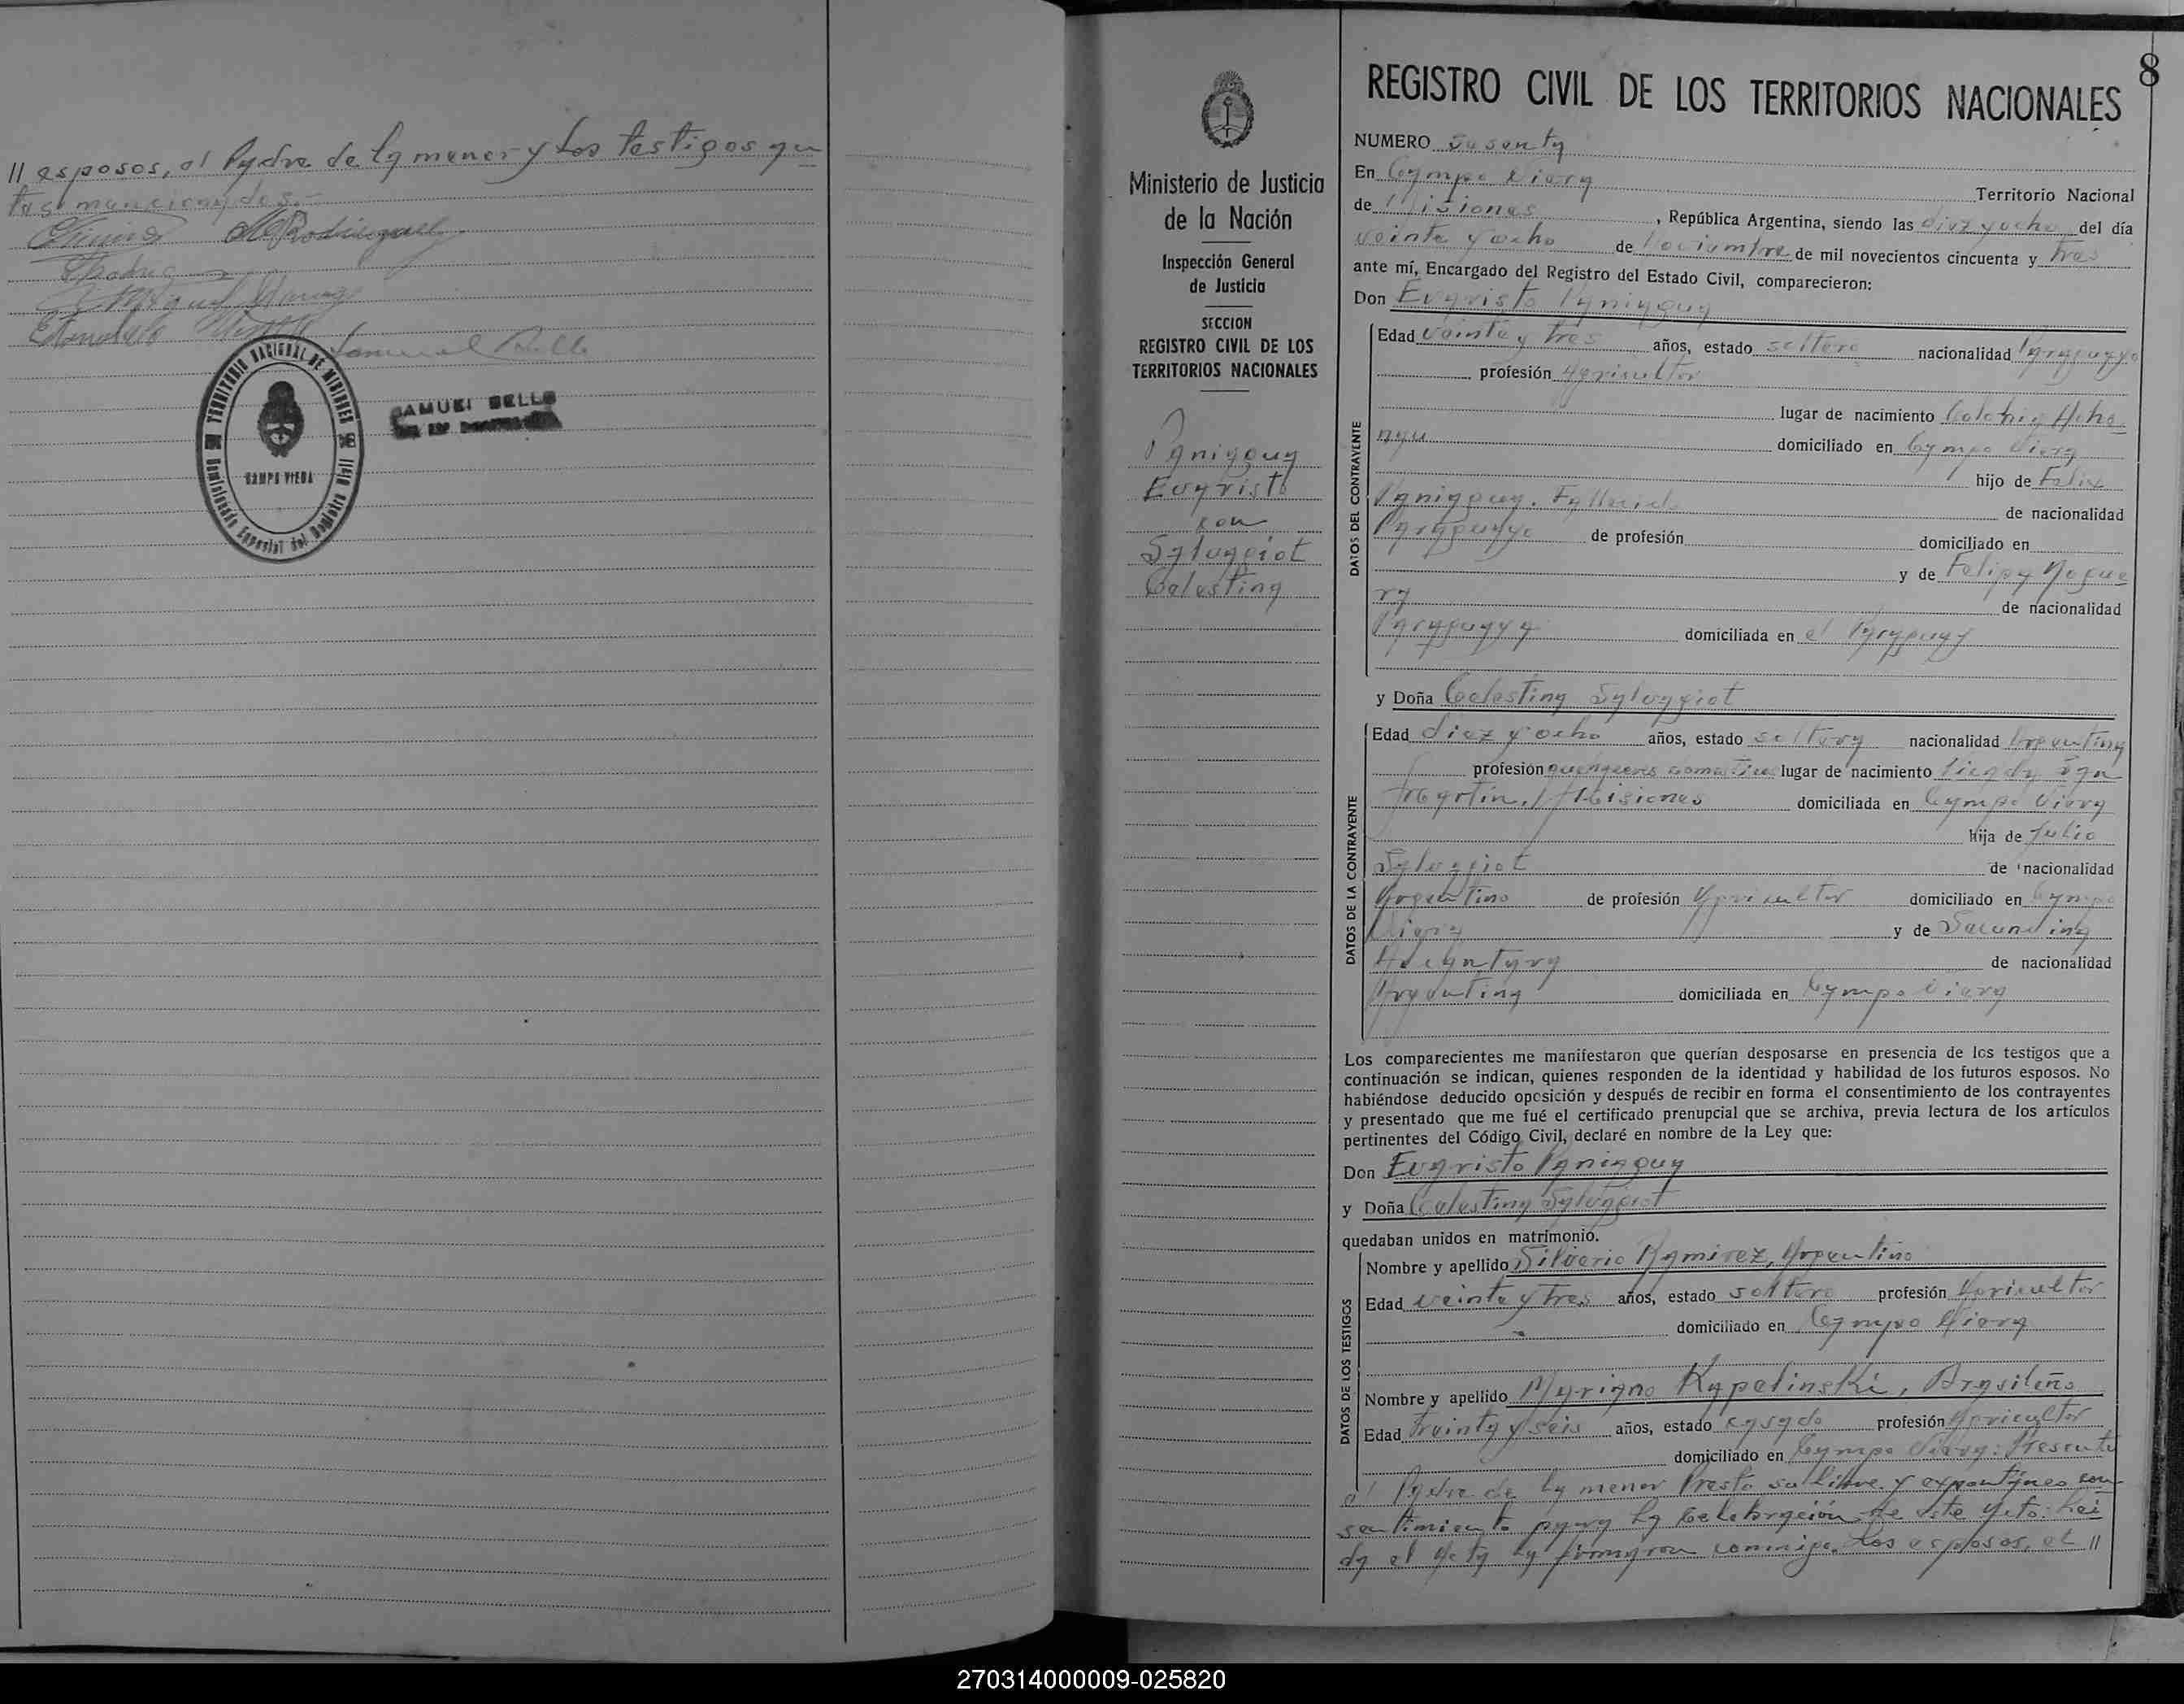 // esposos, el Padre de la menor y los testigos an
tes mencionados.-
Samuel Bello
TERRITORIO NACIONAL DE MISIONES
CAMPO VIERA
SAMUEL BELLO
8
REGISTRO CIVIL DE LOS TERRITORIOS NACIONALES
Ministerio de Justicia
de la Nación
Inspección General
de Justicia
SECCION
REGISTRO CIVIL DE LOS
TERRITORIOS NACIONALES
Paniagua
Evaristo
con
Celestina
NUMERO sesenta
En Campo Viera Territorio Nacional
de Misiones, República Argentina, siendo las diez y ocho del día
veinte y ocho de Noviembre de mil novecientos cincuenta y tres
ante mí, Encargado del Registro del Estado Civil, comparecieron:
Don Evaristo Paniagua
DATOS DEL CONTRAYENTE
Edad veinte y tres años, estado soltero nacionalidad Paraguayo
profesión Agricultor
lugar de nacimiento Colonia Hohe
nau domiciliado en Campo Viera
hijo de Felix
Paniagua, Fallecido de nacionalidad
Paraguayo de profesión domiciliado en
y de Felipa Nogue
ra de nacionalidad
Paraguaya domiciliada en el Paraguay
y Doña Celestina
DATOS DE LA CONTRAYENTE
Edad diez y ocho años, estado soltera nacionalidad Argentina
profesión quehaceres domesticos lugar de nacimiento Picada San
Martín, Misiones domiciliada en Campo Viera
hija de Julio
de nacionalidad
Argentino de profesión Agricultor domiciliado en Campo
Viera y de Secundina
Alcantara de nacionalidad
Argentina domiciliada en Campo Viera
Los comparecientes me manifestaron que querían desposarse en presencia de los testigos que a
continuación se indican, quienes responden de la identidad y habilidad de los futuros esposos. No
habiéndose deducido oposición y después de recibir en forma el consentimiento de los contrayentes
y presentado que me fué el certificado prenupcial que se archiva, previa lectura de los artículos
pertinentes del Código Civil, declaré en nombre de la Ley que:
Don Evaristo Paniagua
y Doña Celestina
quedaban unidos en matrimonio.
DATOS DE LOS TESTIGOS
Nombre y apellido Silverio Ramirez, Argentino
Edad veinte y tres años, estado soltero profesión Agricultor
domiciliado en Campo Viera
Nombre y apellido Mariano Kapelinski, Brasileño
Edad treinta y seis años, estado casado profesión Agricultor
domiciliado en Campo Viera: Presente
el Padre de la menor Presto su libre y expontaneo con
sentimiento para la celebración de este acto: Lei
da el acta la firmaron conmigo, los esposos, el //
270314000009-025820